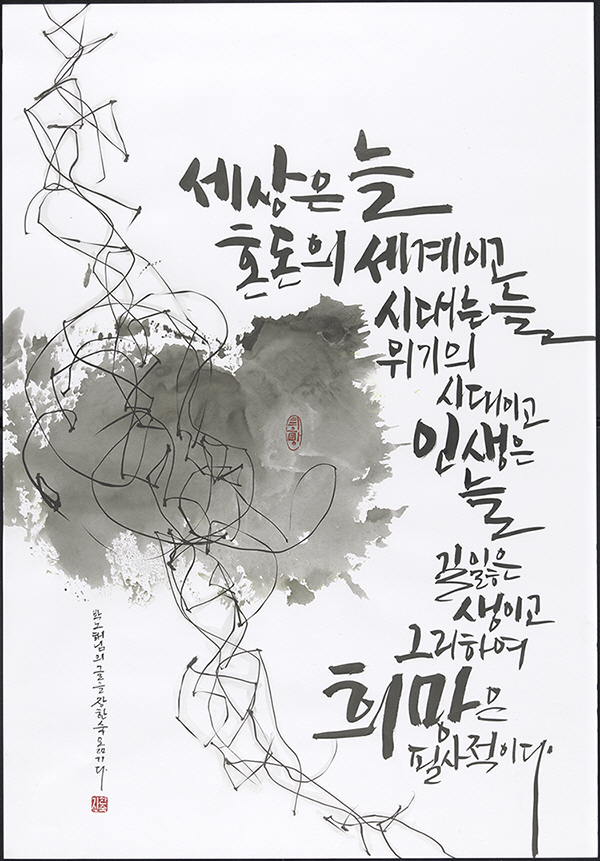 세상은 늘
혼돈의 세계이고
시대는 늘
위기의
시대이고
인생은
늘
길잃은
생이고
그리하여
희망은
필사적이다.
희망
박노해님의 글을 장한숙 옮기다.